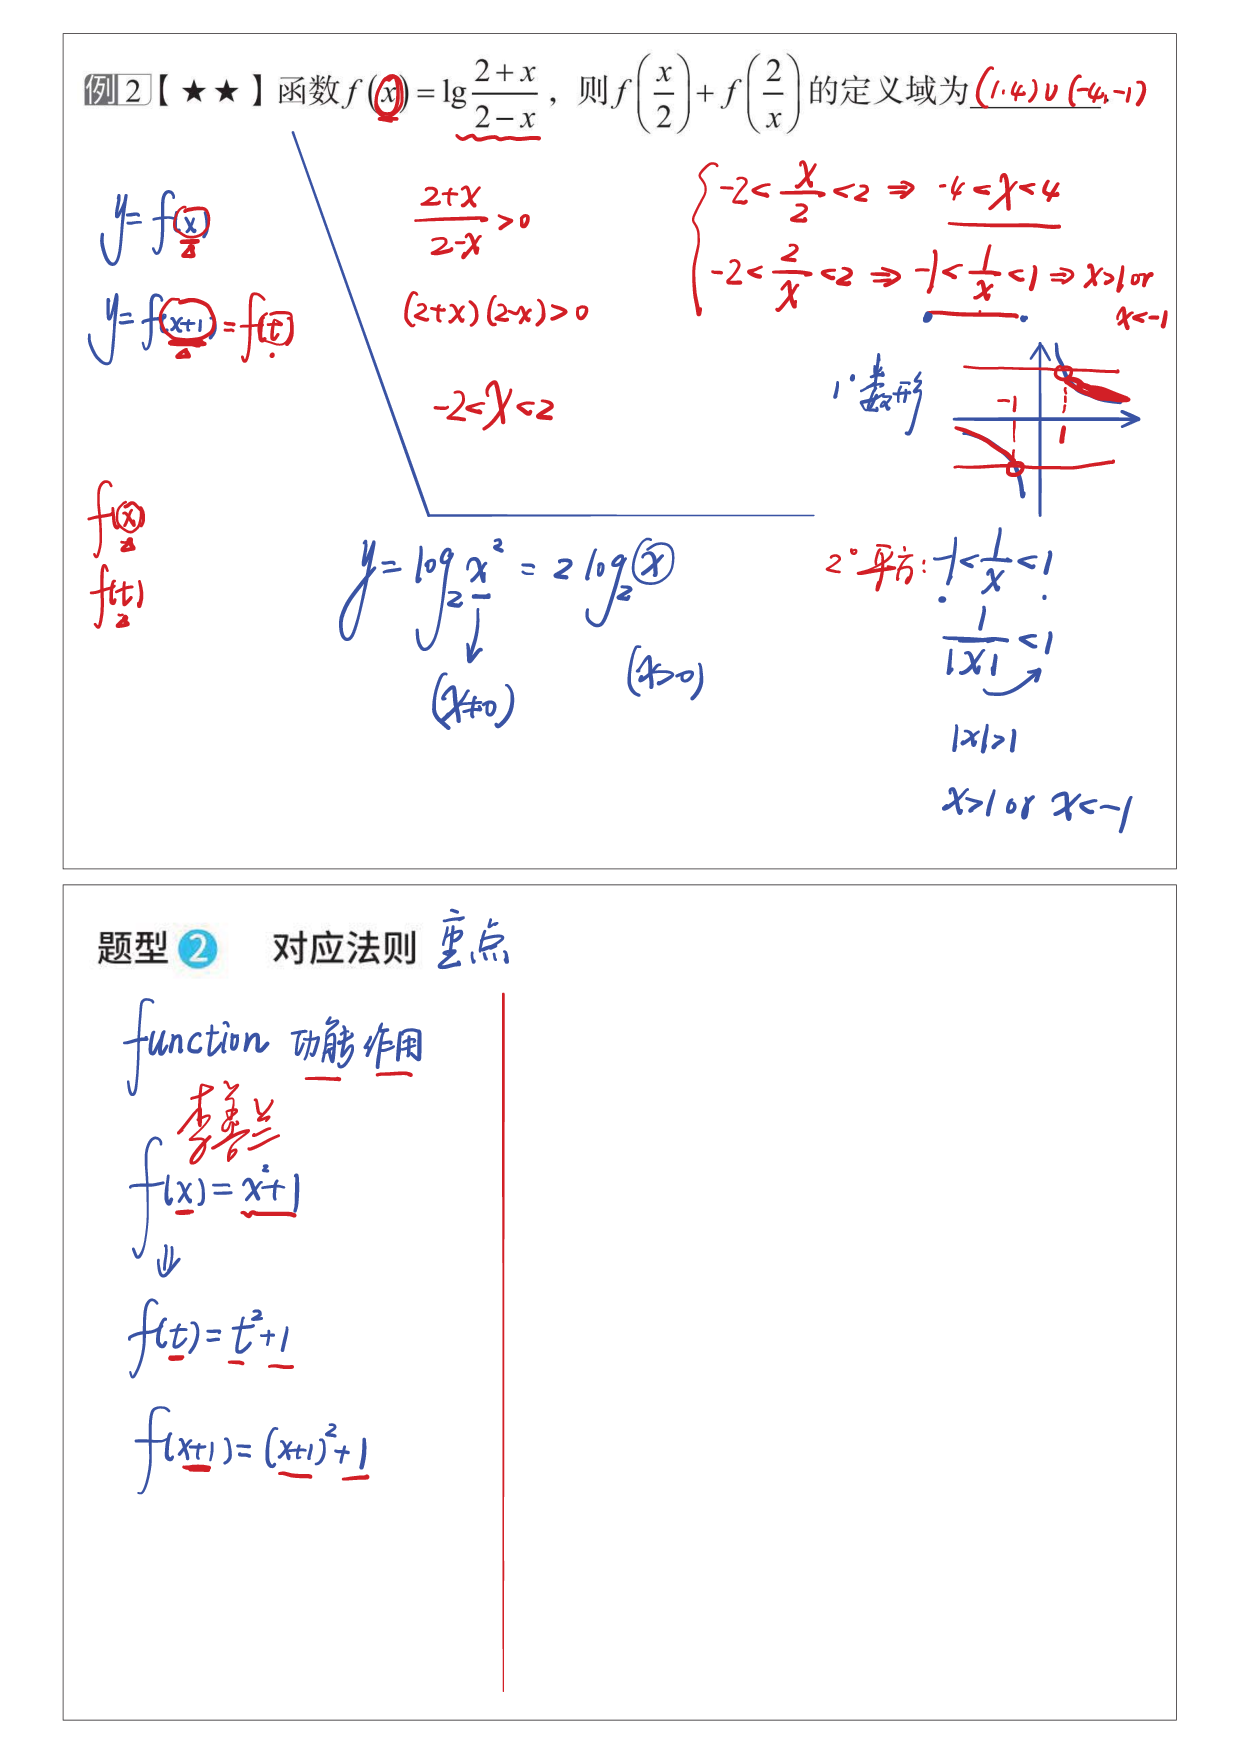 例2【★★】函数f(x)=lg (2+x)/(2-x)，则f(x/2)+f(2/x)的定义域为(1.4)∪(-4,-1)
y=f(x)
y=f(x+1)=f(t)
f(x)
f(t)
(2+x)/(2-x)>0
(2+x)(2-x)>0
-2<x<2
-2<x/2<2 ⇒ -4<x<4
-2<2/x<2 ⇒ -1<1/x<1 ⇒ x>1 or
x<-1
1° 数形
-1
1
y=log₂x²=2log₂x
(x≠0)
(x>0)
2° 平方: -1<1/x<1
1/|x|<1
|x|>1
x>1 or x<-1
题型2 对应法则 重点
function 功能 作用
李善兰
f(x)=x²+1
⇓
f(t)=t²+1
f(x+1)=(x+1)²+1